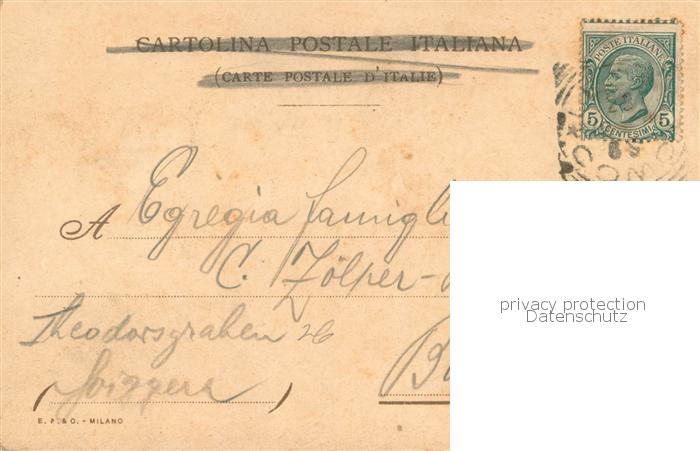 CARTOLINA POSTALE ITALIANA
(CARTE POSTALE D'ITALIE)
POSTE ITALIANE
5 CENTESIMI 5
A Egregia famigli
C. Zölper-
Theodorsgraben 26
(Svizzera)
E. P. & C. - MILANO
privacy protection
Datenschutz